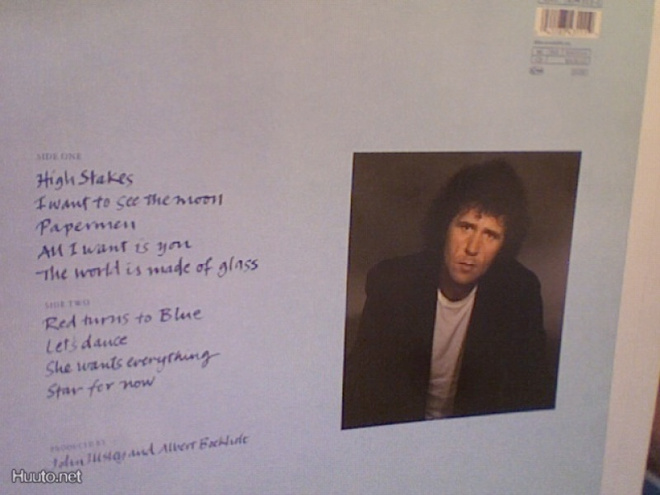 SIDE ONE
High Stakes
I want to see the moon
Papermen
All I want is you
The world is made of glass
SIDE TWO
Red turns to Blue
Let's dance
She wants everything
Star for now
PRODUCED BY
John Illsley and Albert Boekholt
Huuto.net